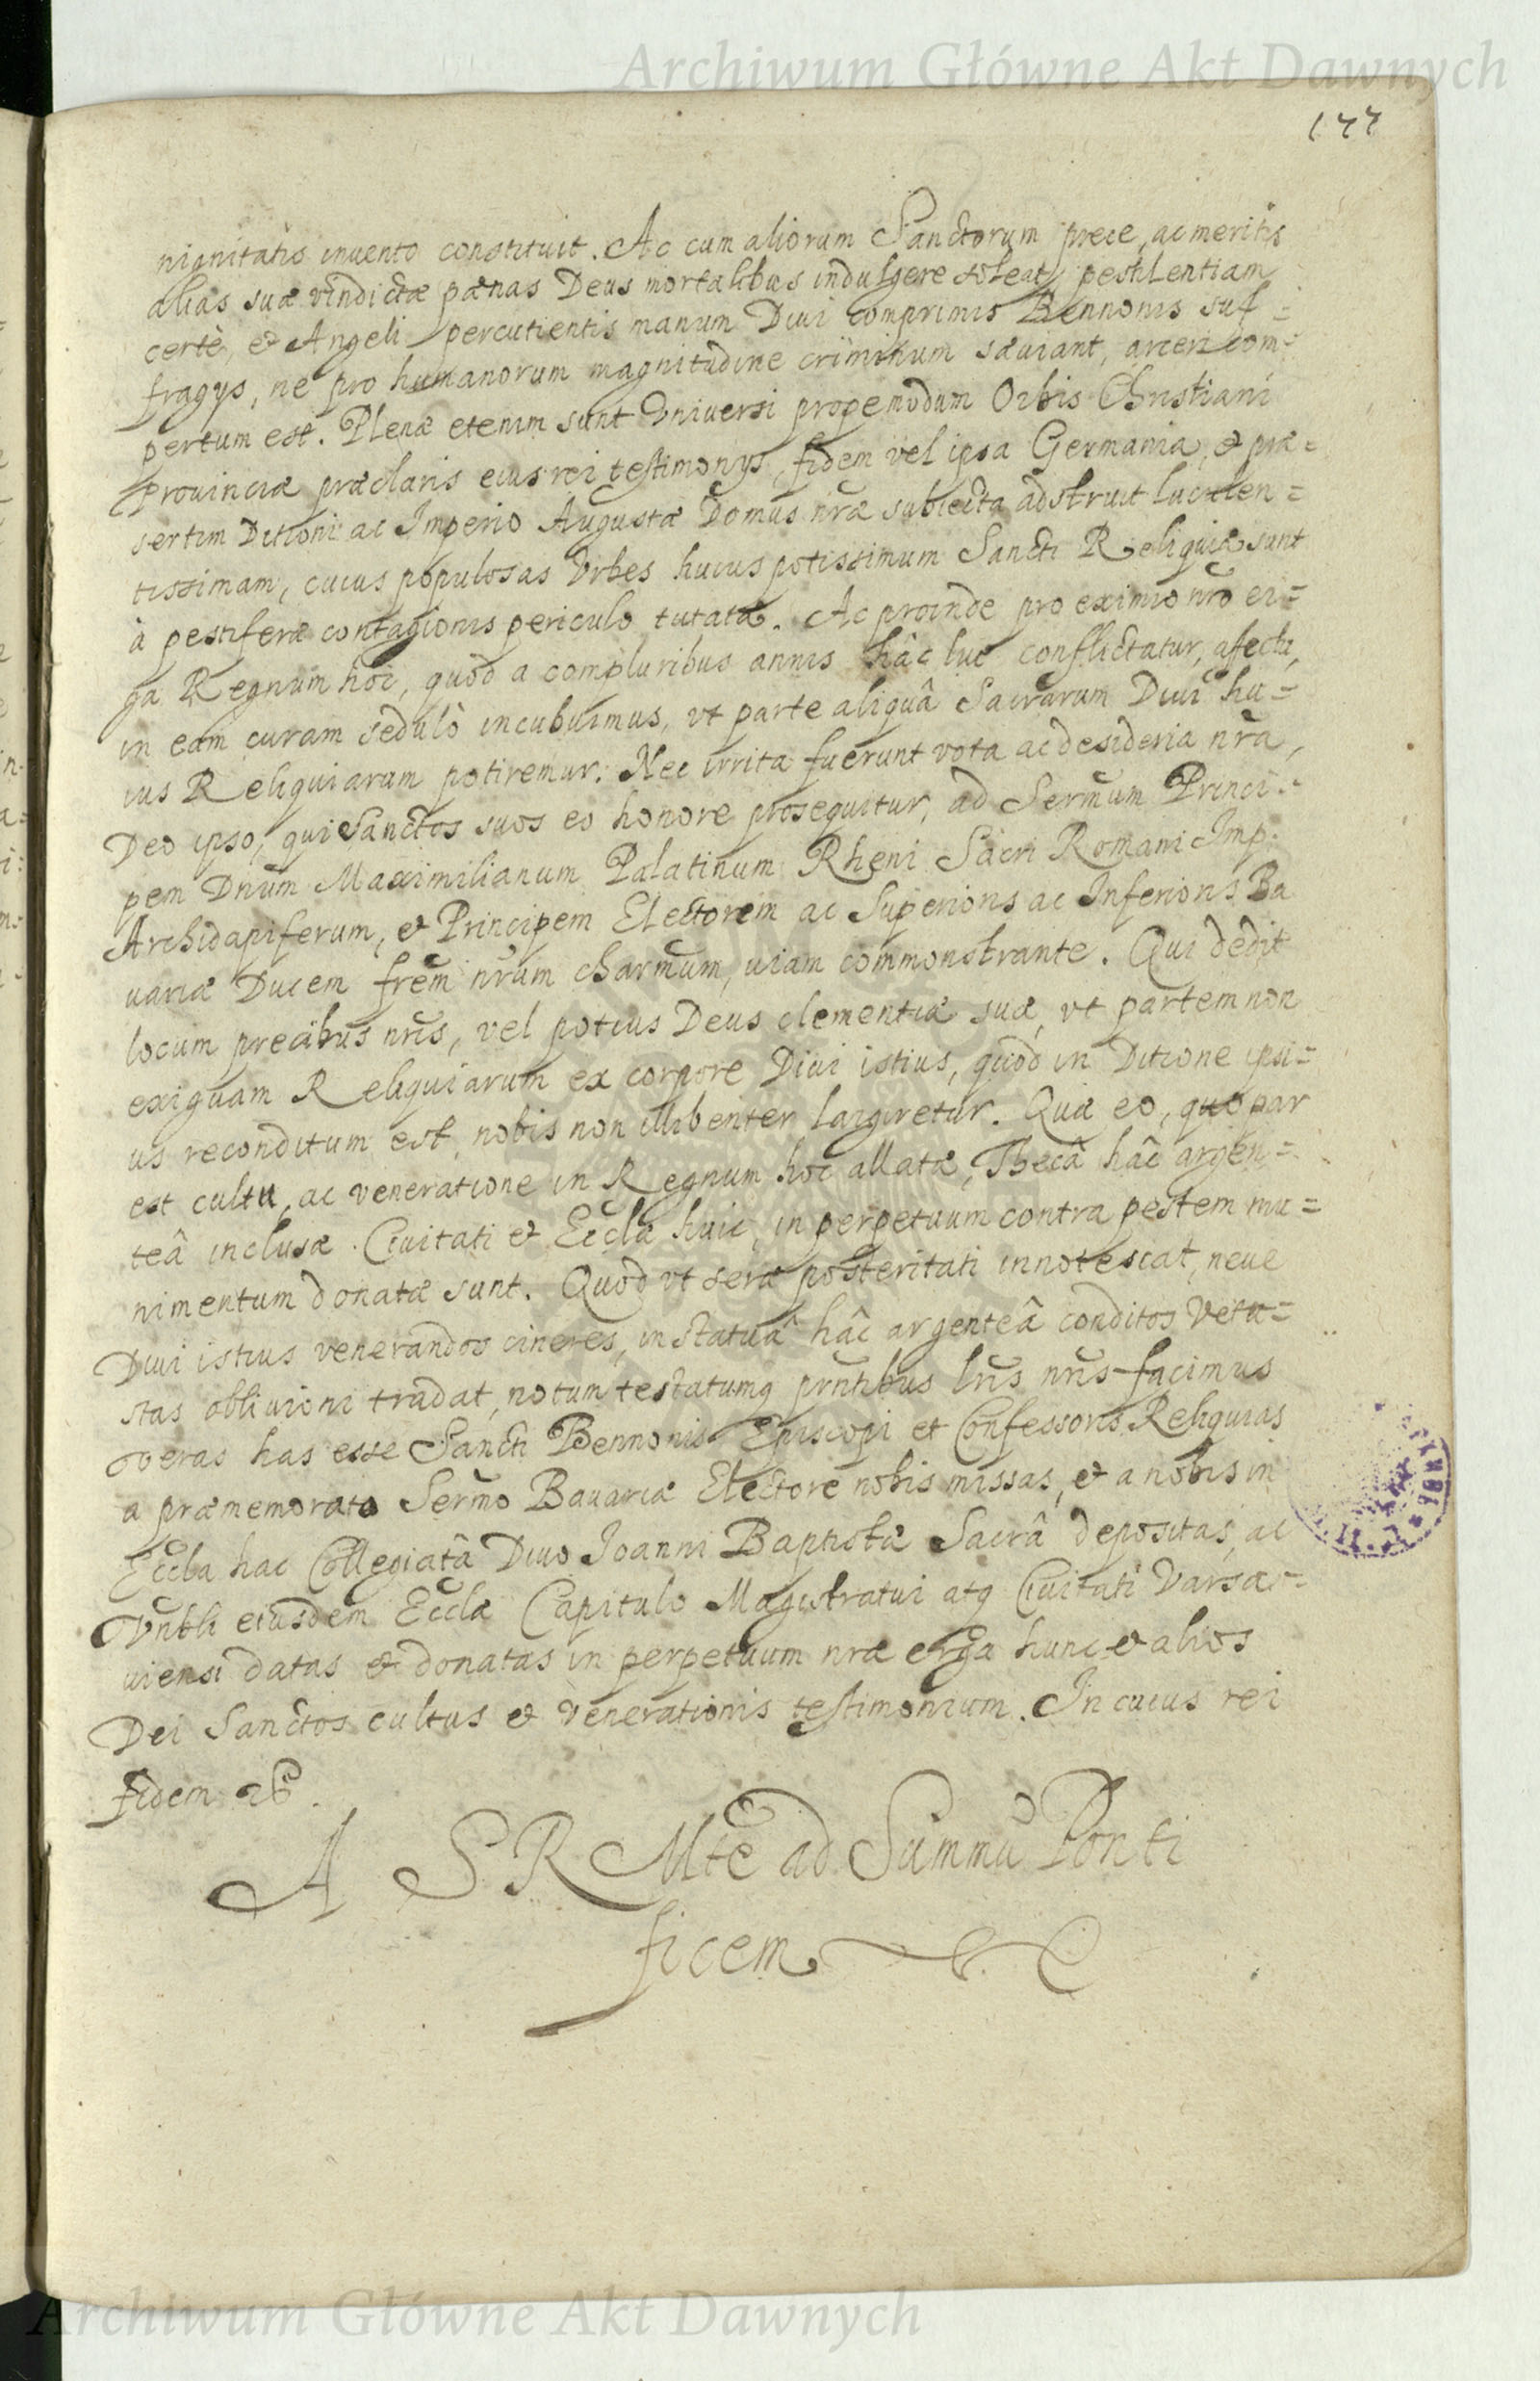 Archiwum Główne Akt Dawnych
177
nignitatis invento constituit. Ac cum aliorum Sanctorum prece, ac meritis
alias suæ vindictæ pænas Deus mortalibus indulgere soleat, pestilentiam
certè, et Angeli percutientis manum Divi comprimis Bennonis suf=
fragys, ne pro humanorum magnitudine criminum sæviant, arceri com=
pertum est. Plenæ etenim sunt Universi propemodum Orbis Christiani
Provinciæ præclaris eius rei testimonys, fidem vel ipsa Germania, et præ=
sertim Ditioni ac Imperio Augustæ Domus nræ subiecta adstruit luculen=
tissimam, cuius populosas Urbes huius potissimum Sancti Reliquiæ sunt
à pestiferæ contagionis periculo tutatæ. Ac proinde pro eximio nro er=
ga Regnum hoc, quod a compluribus annis hâc lue conflictatur, affectu,
in eam curam sedulò incubuimus, vt parte aliquâ Sacrarum Divi hu=
ius Reliquiarum potiremur. Nec irrita fuerunt vota ac desideria nra,
Deo ipso, qui Sanctos suos eo honore prosequitur, ad Sermum Princi=
pem Dnum Maximilianum Palatinum Rheni Sacri Romani Imp.
Archidapiferum, et Principem Electorem ac Superioris ac Inferioris Ba
uariæ Ducem frem nrum charmum, uiam commonstrante. Qui dedit
locum precibus nris, vel potius Deus clementiæ suæ, vt partem non
exiguam Reliquiarum ex corpore Divi istius, quod in Ditione ipsi=
us reconditum est, nobis non illibenter largiretur. Quæ eo, quo par
est cultu, ac veneratione in Regnum hoc allatæ, Thecâ hâc argen=
teâ inclusæ. Civitati et Eccla huic, in perpetuum contra pestem mu=
nimentum donatæ sunt. Quod vt seræ posteritati innotescat, neue
Divi istius venerandos cineres, in statuâ hâc argenteâ conditos Vetu=
stas obliuioni tradat, notum testatumq prntibus lris nris facimus
veras has esse Sancti Bennonis Episcopi et Confessoris Reliquias
a præmemorato Sermo Bavariæ Electore nobis missas, et a nobis in
Eccla hac Collegiatâ Divo Joanni Baptistæ Sacrâ depositas, ac
Vnbli eiusdem Ecclæ Capitulo Magistratui atq Civitati Varsa=
uiensi datas et donatas in perpetuum nræ erga hunc et alios
Dei Sanctos cultus et Venerationis testimonium. In cuius rei
fidem
A S R Mte ad Summu Ponti
ficem
Archiwum Główne Akt Dawnych